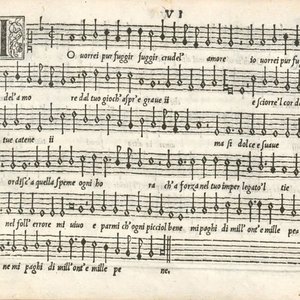 VI
IO vorrei pur fuggir fuggir crudel' amore io vorrei pur fu
del' a mo re dal tuo gioch' aspr' e graue ii e sciorre'l cor da
tue catene ii ma si dolce e suaue
ordisc' a quella speme ogni ho ra ch'a forza nel tuo imper legato'l tie
nel foll' errore mi viuo e parmi ch'ogni picciol bene mi paghi di mill' ont' e mille
ne mi paghi di mill' ont' e mille pe ne.